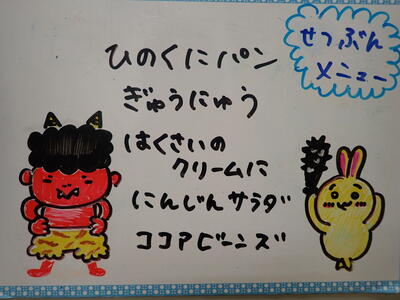 せつぶん
メニュー
ひのくにパン
ぎゅうにゅう
はくさいの
クリームに
にんじんサラダ
ココアビーンズ